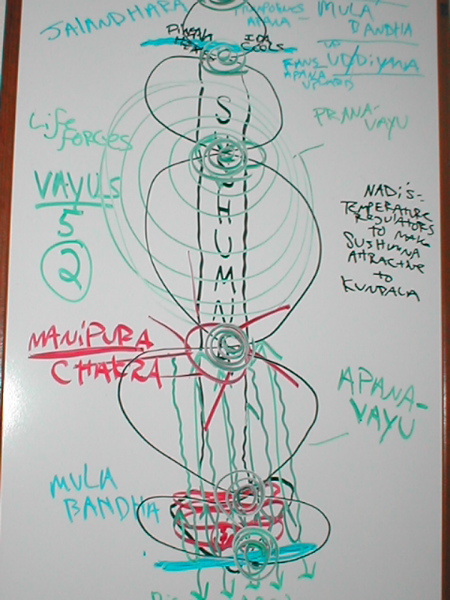 JALANDHARA
APANA-
MULA
BANDHA
PINGALA
HEATS
IDA
COOLS
FANS UDDIYANA
APANA
UPWARDS
LIFE
FORCES
PRANA-
VAYU
VAYUS
5
2
SUSHUMNA
NADIS-
TEMPERATURE
REGULATORS
TO MAKE
SUSHUMNA
ATTRACTIVE
TO
KUNDALA
MANIPURA
CHAKRA
APANA-
VAYU
MULA
BANDHA